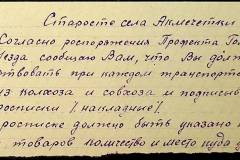 Старосте села Акмечетки
Согласно распоряжения Префекта Гол
уезда сообщаю Вам, что Вы долж
ствовать при каждом транспорт
из колхоза и совхоза и подписыв
росписки / накладние /.
росписке должно быть указано к
товаров количество и место куда